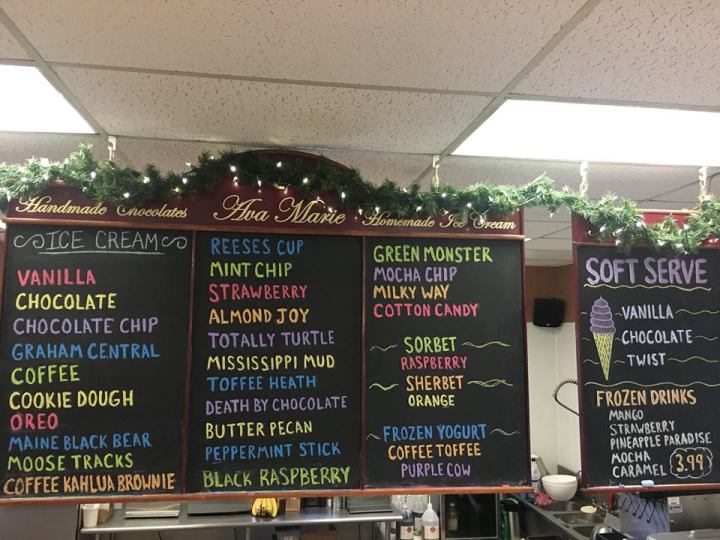 Handmade Chocolates
Ava Marie
Homemade Ice Cream
ICE CREAM
VANILLA
CHOCOLATE
CHOCOLATE CHIP
GRAHAM CENTRAL
COFFEE
COOKIE DOUGH
OREO
MAINE BLACK BEAR
MOOSE TRACKS
COFFEE KAHLUA BROWNIE
REESES CUP
MINT CHIP
STRAWBERRY
ALMOND JOY
TOTALLY TURTLE
MISSISSIPPI MUD
TOFFEE HEATH
DEATH BY CHOCOLATE
BUTTER PECAN
PEPPERMINT STICK
BLACK RASPBERRY
GREEN MONSTER
MOCHA CHIP
MILKY WAY
COTTON CANDY
SORBET
RASPBERRY
SHERBET
ORANGE
FROZEN YOGURT
COFFEE TOFFEE
PURPLE COW
SOFT SERVE
VANILLA
CHOCOLATE
TWIST
FROZEN DRINKS
MANGO
STRAWBERRY
PINEAPPLE PARADISE
MOCHA
CARAMEL 3.99